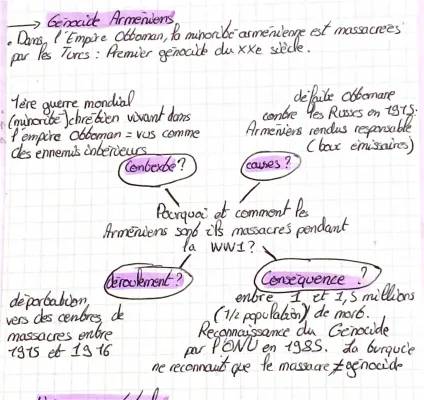 → Génocide Arméniens
. Dans l'Empire Ottoman, la minorité arménienne est massacrées
par les Turcs : Premier génocide du XXe siècle.
1ère guerre mondial
(minorité) chrétien vivant dans
l'empire Ottoman = vus comme
des ennemis intérieurs
défaite Ottomane
contre les Russes en 1915.
Arméniens rendus responsable
(boux émissaires)
Contexte ?
causes ?
Pourquoi et comment les
Arméniens sont ils massacres pendant
la WW1 ?
déroulement ?
Conséquence ?
déportation
vers des centres de
massacres entre
1915 et 1916
entre 1 et 1,5 millions
(1/2 population) de mort.
Reconnaissance du Génocide
par l'ONU en 1985. La turquie
ne reconnaut que le massacre ≠ génocide